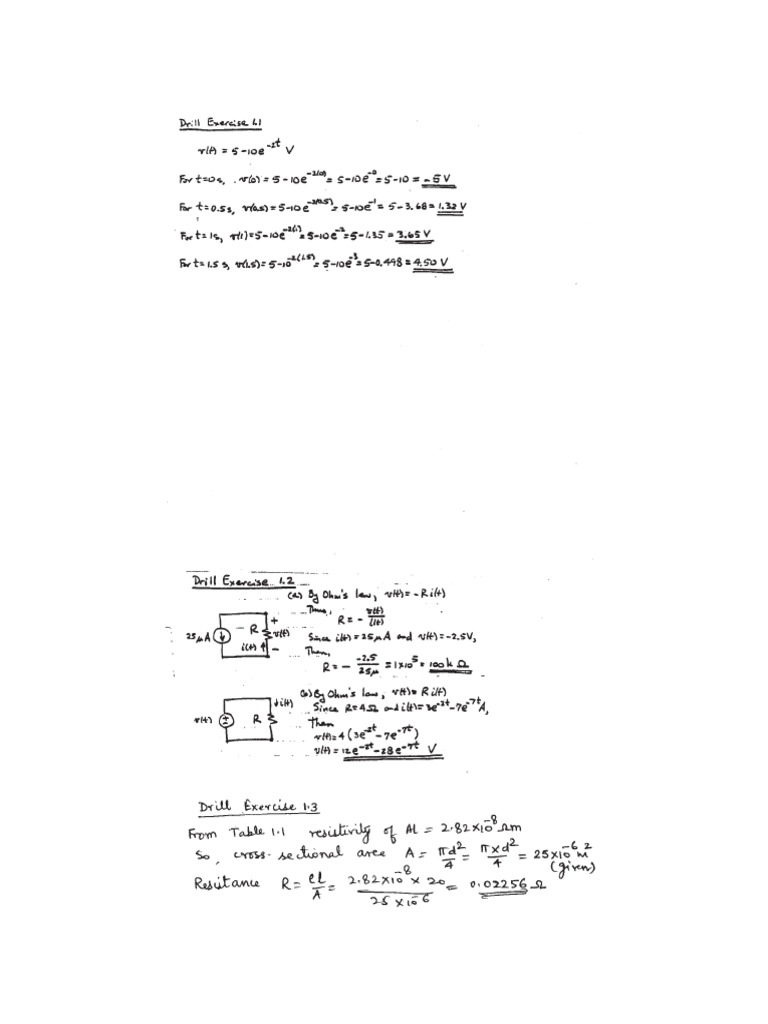 Drill Exercise 1.1
v(t) = 5-10e^-2t V
For t=0s, v(0) = 5-10e^-2(0) = 5-10e^-0 = 5-10 = -5 V
For t=0.5s, v(0.5) = 5-10e^-2(0.5) = 5-10e^-1 = 5-3.68 = 1.32 V
For t=1s, v(1) = 5-10e^-2(1) = 5-10e^-2 = 5-1.35 = 3.65 V
For t=1.5s, v(1.5) = 5-10^-2(1.5) = 5-10e^-3 = 5-0.498 = 4.50 V
Drill Exercise 1.2
(a) By Ohm's law, v(t) = -Ri(t)
Thus, R = - v(t)/i(t)
25μA R + v(t) - i(t)
Since i(t) = 25μA and v(t) = -2.5V,
Then,
R = - -2.5/25μ = 1x10^5 = 100k Ω
(b) By Ohm's law, v(t) = Ri(t)
v(t) ± R i(t)
Since R=4Ω and i(t) = 3e^-2t - 7e^-7t A,
Then
v(t) = 4(3e^-2t - 7e^-7t)
v(t) = 12e^-2t - 28e^-7t V
Drill Exercise 1.3
From Table 1.1 resistivity of Al = 2.82x10^-8 Ωm
So, cross-sectional area A = πd^2/4 = πxd^2/4 = 25x10^-6 m^2
(given)
Resitance R = ρl/A = 2.82x10^-8 x 20/25x10^-6 = 0.02256 Ω